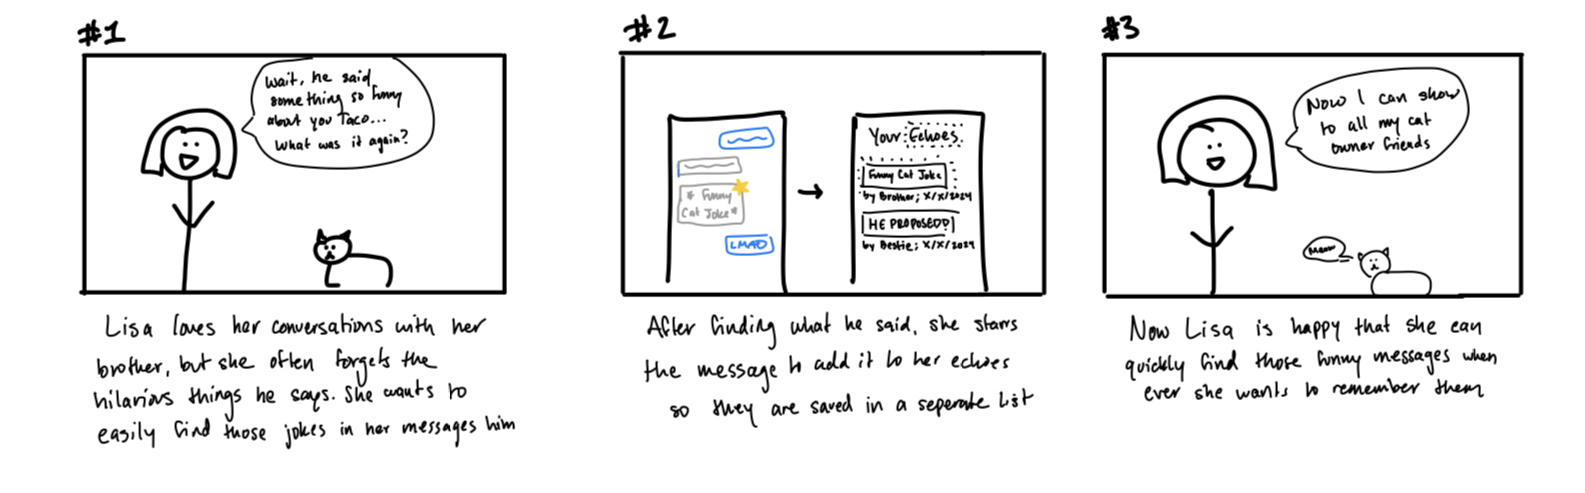 #1
Wait, he said
something so funny
about you Taco...
What was it again?
Lisa loves her conversations with her
brother, but she often forgets the
hilarious things he says. She wants to
easily find those jokes in her messages him
#2
* Funny
Cat Joke*
LMAO
Your Echoes
Funny Cat Joke
by Brother; X/X/2024
HE PROPOSED?!
by Bestie; X/X/2024
After finding what he said, she stars
the message to add it to her echoes
so they are saved in a seperate list
#3
Now I can show
to all my cat
owner friends
Meow
Now Lisa is happy that she can
quickly find those funny messages when
ever she wants to remember them